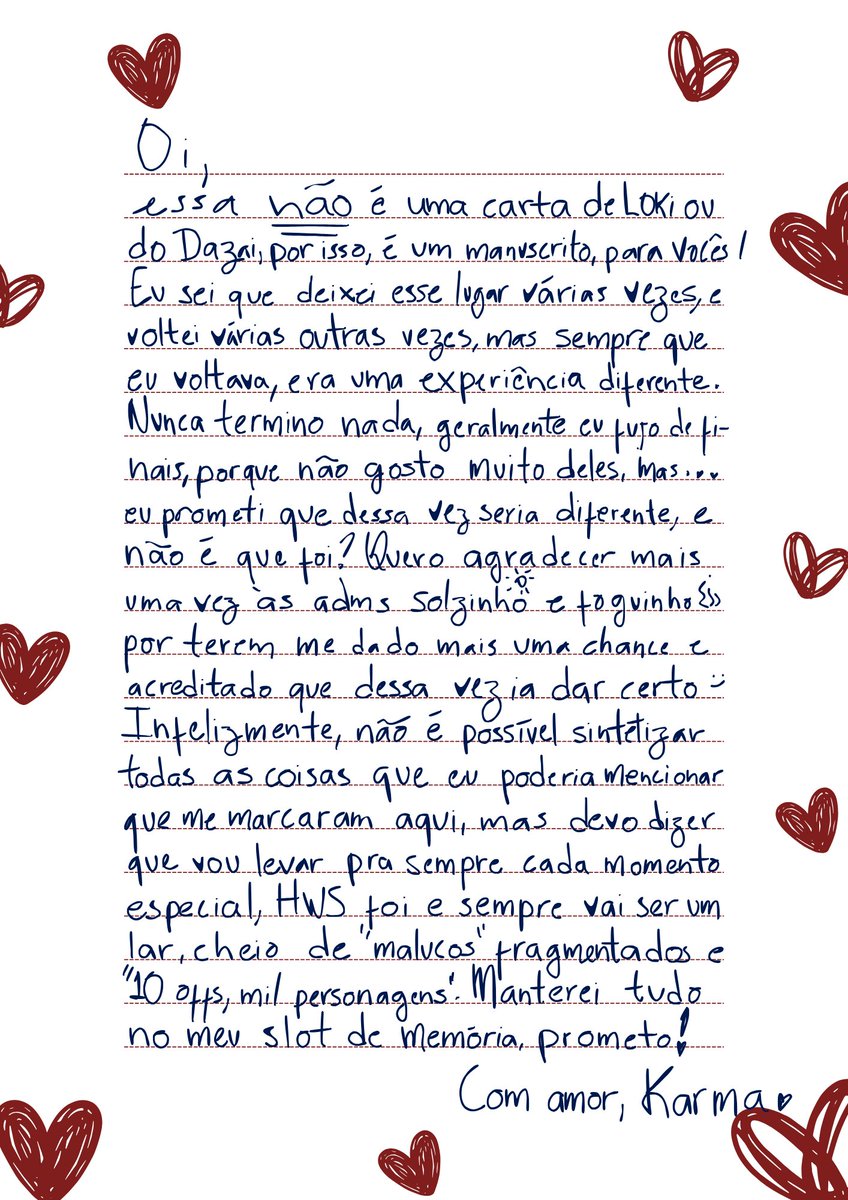 Oi,
essa não é uma carta de LOKi ou
do Dazai, por isso, é um manuscrito, para vocês!
Eu sei que deixei esse lugar várias vezes, e
voltei várias outras vezes, mas sempre que
eu voltava, era uma experiência diferente.
Nunca termino nada, geralmente eu fujo de fi-
nais, porque não gosto muito deles, mas...
eu prometi que dessa vez seria diferente, e
não é que foi? Quero agradecer mais
uma vez às adms solzinho e foguinho
por terem me dado mais uma chance e
acreditado que dessa vez ia dar certo :)
Infelizmente, não é possível sintetizar
todas as coisas que eu poderia mencionar
que me marcaram aqui, mas devo dizer
que vou levar pra sempre cada momento
especial, HWS foi e sempre vai ser um
lar, cheio de "malucos" fragmentados e
"10 offs, mil personagens". Manterei tudo
no meu slot de memória, prometo!
Com amor, Karma